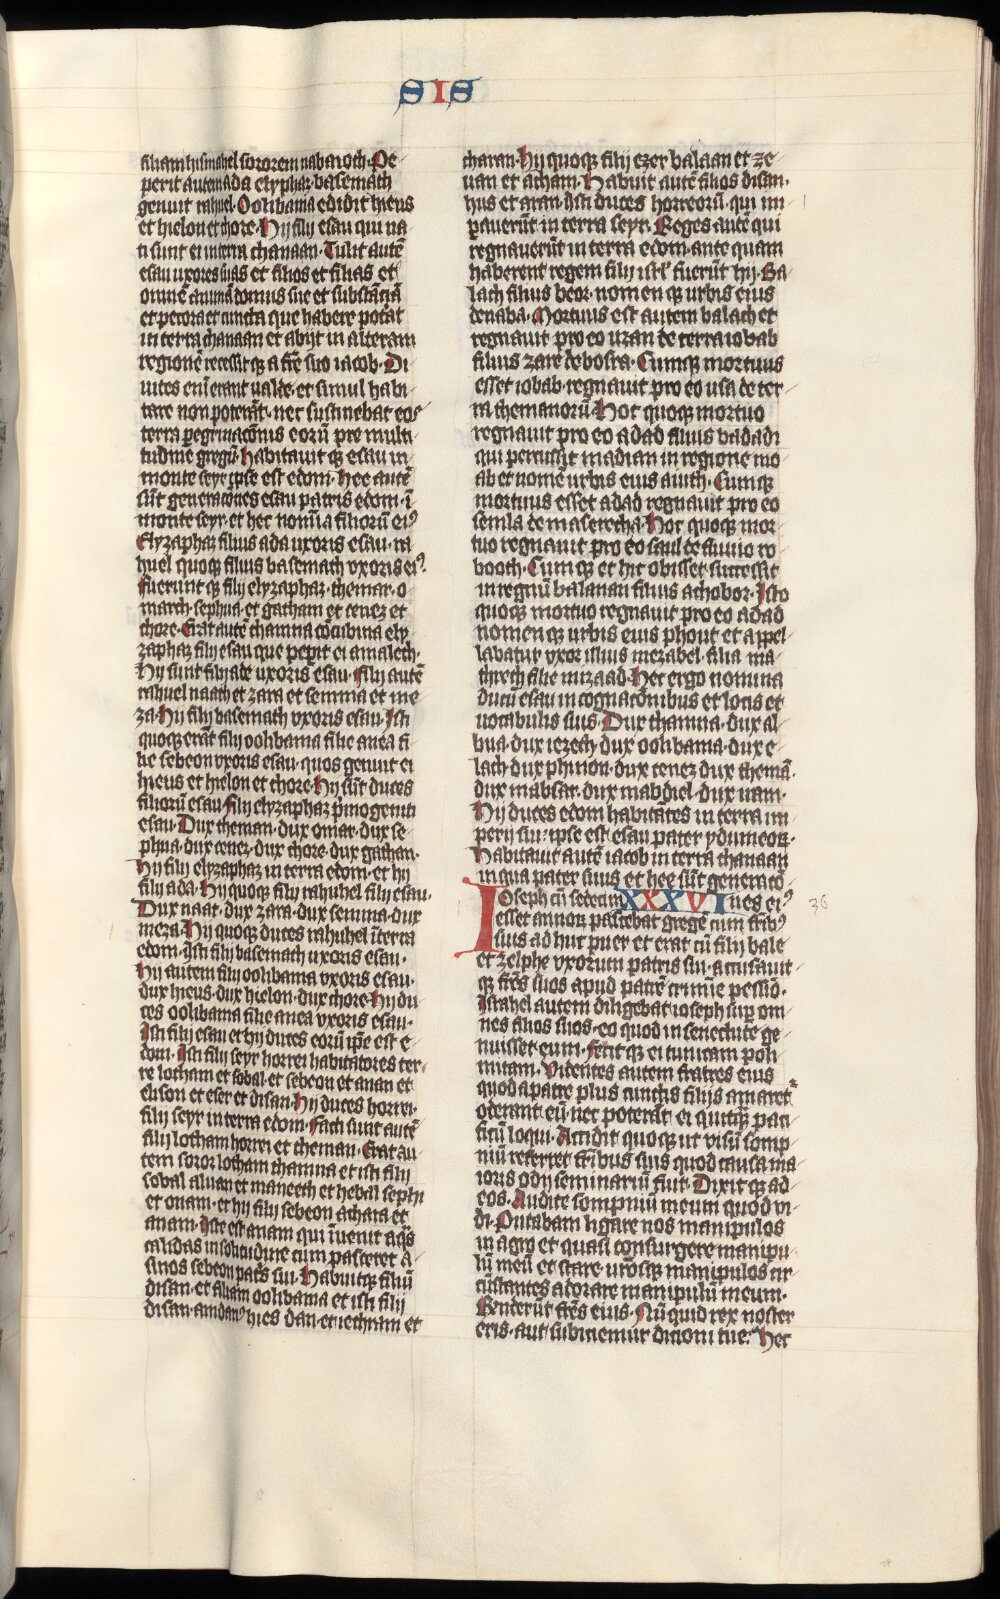 SIS
filiam hismahel sororem nabaioth. Pe
perit autem ada elyphaz. basemath
genuit rahuel. Oolibama edidit hieus
et hielon et chore. Hij filij esau qui na
ti sunt ei in terra chanaan. Tulit autē
esau uxores suas et filios et filias et
omnē animā domus sue et substāciā
et pecora et cuncta que habere poťat
in terra chanaan et abijt in alteram
regionē recessit qȝ a fre suo iacob. Di
uites enī erant ualde. et simul habi
tare non poterāt. nec sustinebat eos
terra pegrinacōnis eorū pre multi
tudine gregū. Habitauit qȝ esau in
monte seyr ipse est edom. Hee autē
sūt generacōnes esau patris edom. ī
monte seyr. et hec nomīa filiorū eiꝰ
Elyzaphaz filius ada uxoris esau. ra
huel quoqȝ filius basemath vxoris eiꝰ.
fuerunt qȝ filij elyzaphaz. theman. o
march. sephua. et gatham et cenez et
chore. Erat autē thamna cōcubina ely
zaphaz filij esau que peꝑit ei amalech.
Hij sunt filij ade uxoris esau. filij autē
rahuel naath et zara et semma et me
za. Hij filij basemath vxoris esau. Isti
quoqȝ erāt filij oolibama filie anea fi
lie sebeon vxoris esau. quos genuit ei
hieus et hielon et chore. Hij sūt duces
filiorū esau. filij elyzaphaz pͥmogeniti
esau. Dux theman. dux omar. dux se
phua. dux cenez. dux chore. dux gathan.
Hij filij elyzaphaz in terra edom. et hij
filij ada. Hij quoqȝ filij rahuhel filij esau.
Dux naat. dux zara. dux semma. dux
meza. Hij quoqȝ duces rahuhel ī terra
edom. Isti filij basemath uxoris esau.
Hij autem filij oolibama vxoris esau.
dux hieus. dux hielon. dux chore. Hij du
ces oolibama filie anea vxoris esau.
Isti filij esau et hij duces eorū ipe est e
dom. Isti filij seyr horrei habitatores ter
re lotham et sobal. et sebeon et anan et
dison et eser et disan. Hij duces horrei.
filij seyr in terra edom. Facti sunt autē
filij lotham horrei et theman. Erat au
tem soror lotham thamna et isti filij
sobal aluan et maneeth et hebal sephi
et onam. et hij filij sebeon achaia et
anam. Iste est anam qui īuenit aqͣs
calidas in solitudine cum pasceret a
sinos sebeon pats sui. Habuitqȝ filiū
disan. et filiam oolibama et isti filij
disan. amdanꝰ hies dan. et iethram et
charan. Hij quoqȝ filij ezer balaan et ze
uan et acham. Habuit autē filios disan.
hus et aran. Isti duces horreorū. qui im
pauerūt in terra seyr. Reges autē qui
regnauerūt in terra edom. ante quam
haberent regem filij isrl' fuerūt hij. Ba
lach filius beor. nomen qȝ urbis eius
denaba. Mortuus est autem balach et
regnauit pro eo uzan de terra iobab
filius zare de bosra. Cumqȝ mortuus
esset iobab. regnauit pro eo usa de ter
ra themanorū. Hoc quoqȝ mortuo
regnauit pro eo adad filius badadi
qui percussit madian in regione mo
ab et nomē urbis eius auith. Cumqȝ
mortuus esset adad regnauit pro eo
semla de maserecha. Hoc quoqȝ mor
tuo regnauit pro eo saul de fluuio ro
booth. Cum qȝ et hic obisset successit
in regnū balanan filius achobor. Isto
quoqȝ mortuo regnauit pro eo adad
nomen qȝ urbis eius phout et appel
labatur vxor illius mezabel. filia ma
threth filie mizaad. Hec ergo nomina
ducū esau in cognacōnibus et locis et
uocabulis suis. Dux thamna. dux al
bua. dux iezech. dux oolibama. dux e
lach. dux phinon. dux cenez dux themā.
dux mabsar. dux mabdiel. dux uam.
Hij duces edom habitātes in terra im
perij sui. ipse est esau pater ydumeoꝝ.
Habitauit autē iacob in terra chanaan
in qua pater suus et hee sūt generacō
Ioseph cū sedecim XXXVI nes eiꝰ 36
esset annoꝝ pascebat gregē cum fribꝰ
suis ad huc puer et erat cū filij bale
et zelphe vxorum patris sui. acusauit
qȝ frēs suos apud patrē crimīe pessiō.
Israhel autem diligebat ioseph sup om
nes filios suos. eo quod in senectute ge
nuisset eum. fecit qȝ ei tunicam poli
mitam. Videntes autem fratres eius
quod a patre plus cunctis filijs amaret͛
oderant eū. nec poterāt ei quitqȝ paci
ficū loqui. Accidit quoqȝ ut visū somp
niū referret fribus suis quod causa ma
ioris odij seminariū fuit. Dixit qȝ ad
eos. Audite sompniū meum quod vi
di. Putabam ligare nos manipulos
in agro et quasi consurgere manipu
lū meū et stare. urōsqȝ manipulos cir
cūstantes adorare manipulū meum.
Rēnderūt frēs eius. Nū quid rex noster
eris. aut subiciemur dicioni tue. Hec